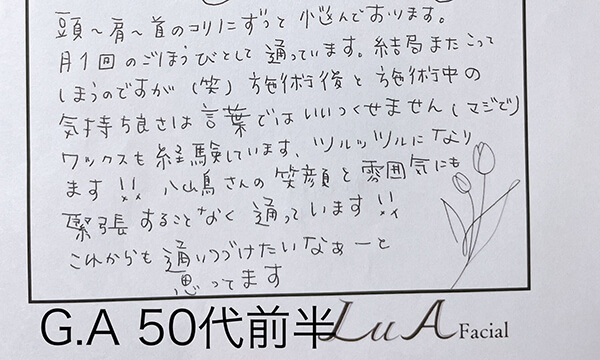 頭〜肩〜首のコリにずっと悩んでおります。
月1回のごほうびとして通っています。結局またこって
しまうのですが(笑)施術後と施術中の
気持ち良さは言葉ではいいつくせません(マジで)
ワックスも経験しています、ツルッツルになり
ます!! 八山鳥さんの笑顔と雰囲気にも
緊張することなく通っています!!
これからも通いつづけたいなぁーと
思ってます
G.A 50代前半
LuA Facial